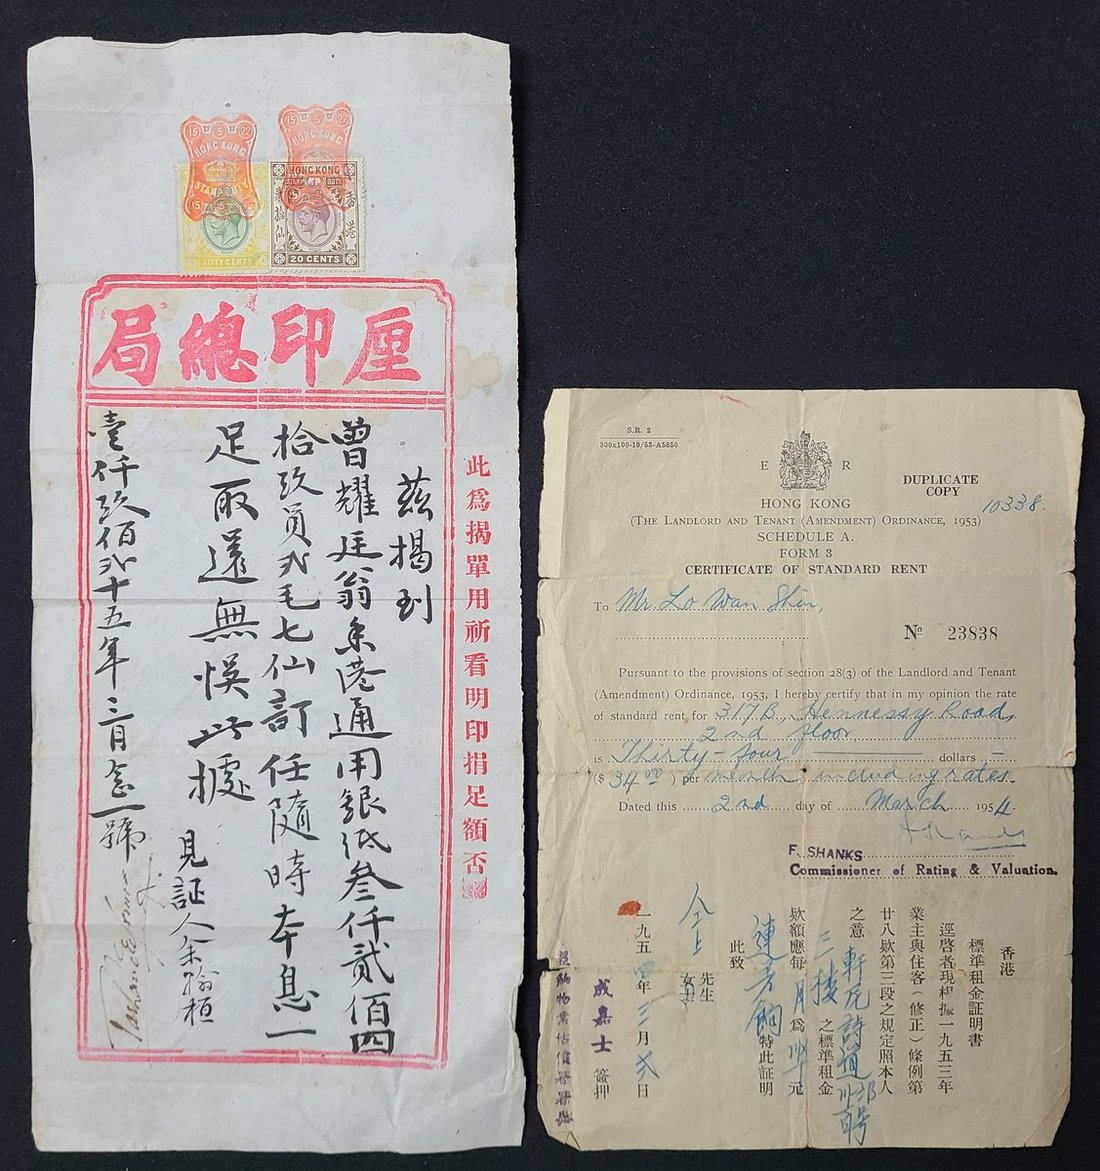 15 5 22
HONG KONG
STAMP DUTY
FIFTY CENTS
15 5 22
HONG KONG
HONG KONG
香港
貳拾仙
20 CENTS
厘印總局
此爲揭單用祈看明印捐足額否
茲揭到
曾耀廷翁來港通用銀紙叁仟貳佰四
拾玖員弍毛七仙訂任隨時本息一
足取還無悞此據
見証人余翰桓
壹仟玖佰弍十五年三月念一號
S.R. 2
300x100-10/53-A5850
E R
DUPLICATE
COPY
10338.
HONG KONG
(THE LANDLORD AND TENANT (AMENDMENT) ORDINANCE, 1953)
SCHEDULE A.
FORM 3
CERTIFICATE OF STANDARD RENT
To Mr. Lo Wan Shin,
No 23838
Pursuant to the provisions of section 28(3) of the Landlord and Tenant
(Amendment) Ordinance, 1953, I hereby certify that in my opinion the rate
of standard rent for 317B, Hennessy Road,
2nd floor,
is Thirty-four dollars
($ 34.00 ) per month, including rates.
Dated this 2nd day of March 1954.
F. SHANKS
Commissioner of Rating & Valuation.
香港
標準租金証明書
逕啓者現根據一九五三年
業主與住客（修正）條例第
廿八欵第三段之規定照本人
之意軒尼詩道
三樓之標準租金
欵額應每月爲 元
連差餉特此証明
此致
仝上先生
女士
一九五四年三月弍日
成嘉士簽押